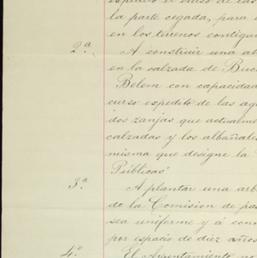 la parte cegada, para
en los terenos contigu
2.ª A construir una al
en la calzada de Buc
Belem con capacidad
curso espedito de las ag
dos zanjas que actualme
calzadas y los albañale
misma que designe la
Públicas
3.ª A plantar una arb
de la Comision de pas
sea uniforme y á con
por espacio de diez años
4.ª El Ayuntamiento